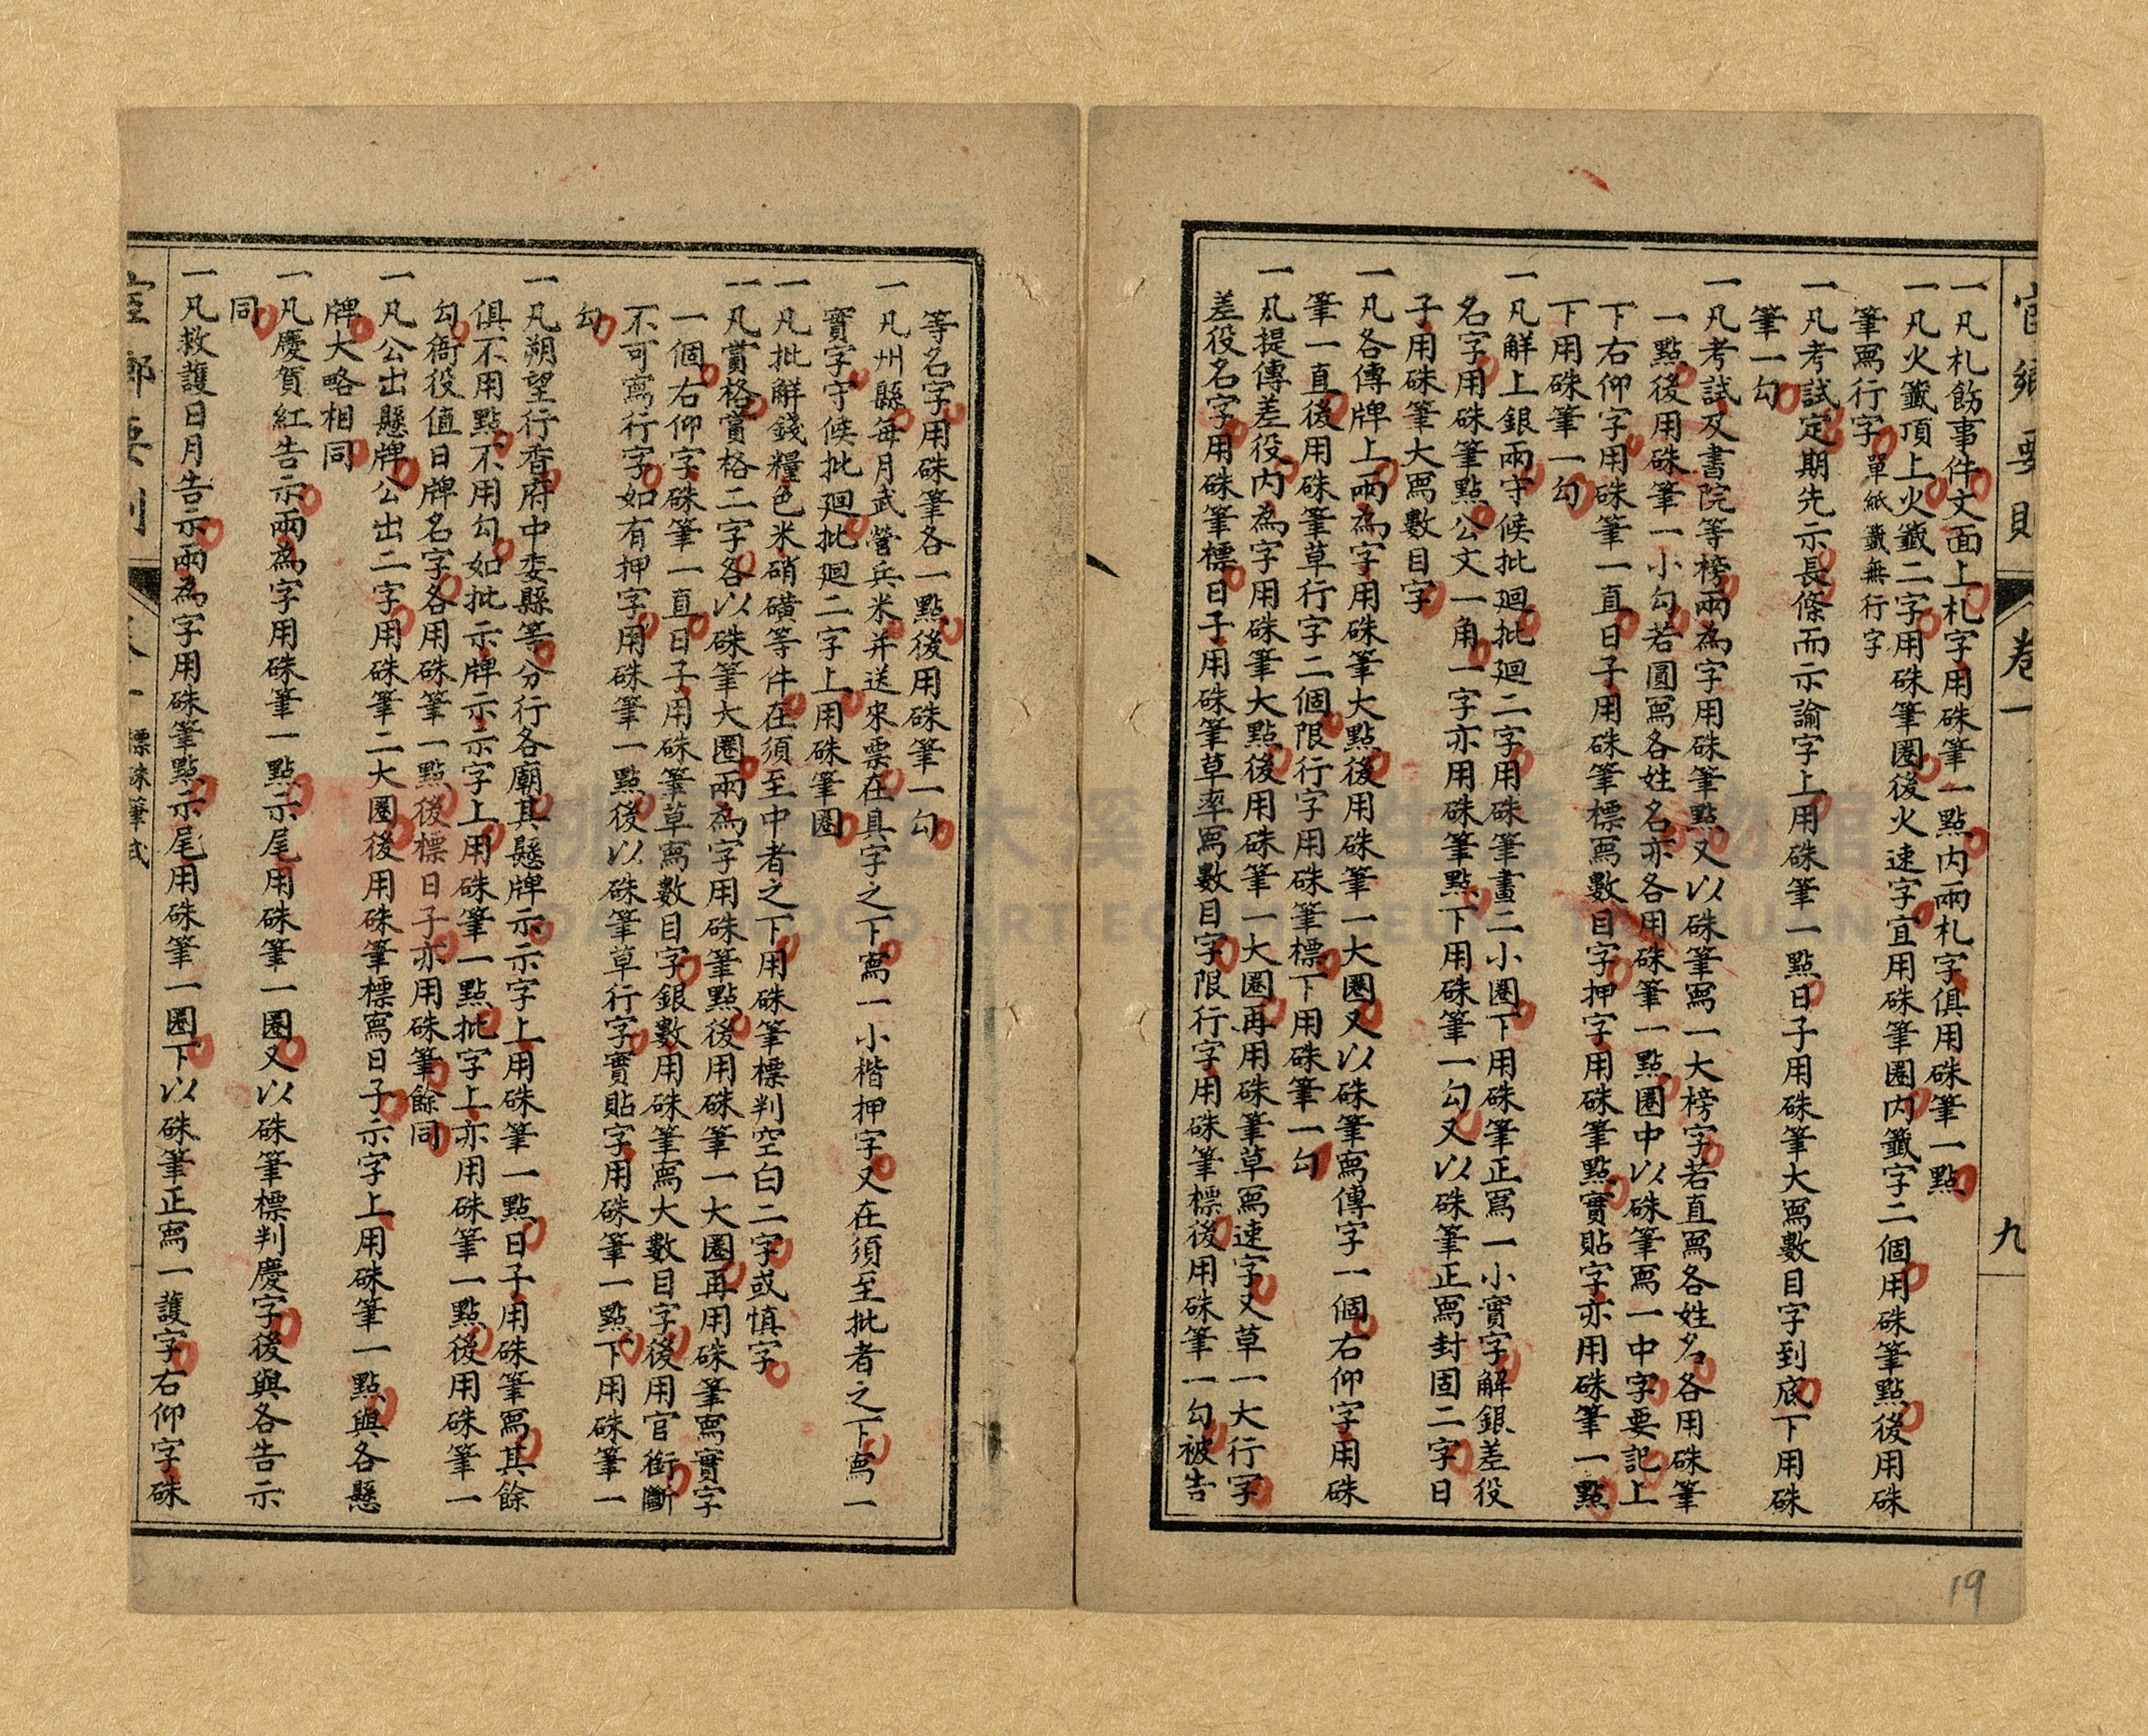 官鄉要則 卷一 九
一凡札飭事件文面上札字用硃筆一點內兩札字俱用硃筆一點
一凡火籤頂上火籤二字用硃筆圈後火速字宜用硃筆圈內籤字二個用硃筆點後用硃
筆寫行字單紙籤無行字
一凡考試定期先示長條而示諭字上用硃筆一點日子用硃筆大寫數目字到底下用硃
筆一勾
一凡考試及書院等榜兩為字用硃筆點又以硃筆寫一大榜字若直寫各姓名各用硃筆
一點後用硃筆一小勾若圓寫各姓名亦各用硃筆一點圈中以硃筆寫一中字要記上
下右仰字用硃筆一直日子用硃筆標寫數目字押字用硃筆點實貼字亦用硃筆一點
下用硃筆一勾
一凡解上銀兩守候批迴批迴二字用硃筆畫二小圈下用硃筆正寫一小實字解銀差役
名字用硃筆點公文一角一字亦用硃筆點下用硃筆一勾又以硃筆正寫封固二字日
子用硃筆大寫數目字
一凡各傳牌上兩為字用硃筆大點後用硃筆一大圈又以硃筆寫傳字一個右仰字用硃
筆一直後用硃筆草行字二個限行字用硃筆標下用硃筆一勾
一凡提傳差役內為字用硃筆大點後用硃筆一大圈再用硃筆草寫速字又草一大行字
差役名字用硃筆標日子用硃筆草率寫數目字限行字用硃筆標後用硃筆一勾被告
等名字用硃筆各一點後用硃筆一勾
一凡州縣每月武營兵米并送來票在具字之下寫一小楷押字又在須至批者之下寫一
實字守候批迴批迴二字上用硃筆圈
一凡批解錢糧色米硝磺等件在須至中者之下用硃筆標判空白二字或慎字
一凡賞格賞格二字各以硃筆大圈兩為字用硃筆點後用硃筆一大圈再用硃筆寫實字
一個右仰字硃筆一直日子用硃筆草寫數目字銀數用硃筆寫大數目字後用官銜斷
不可寫行字如有押字用硃筆一點後以硃筆草行字實貼字用硃筆一點下用硃筆一
勾
一凡朔望行香府中委縣等分行各廟其懸牌示示字上用硃筆一點日子用硃筆寫其餘
俱不用點不用勾如批示牌示示字上用硃筆一點批字上亦用硃筆一點後用硃筆一
勾衙役值日牌名字各用硃筆一點後標日子亦用硃筆餘同
一凡公出懸牌公出二字用硃筆二大圈後用硃筆標寫日子示字上用硃筆一點與各懸
牌大略相同
一凡慶賀紅告示兩為字用硃筆一點示尾用硃筆一圈又以硃筆標判慶字後與各告示
同
一凡救護日月告示兩為字用硃筆點示尾用硃筆一圈下以硃筆正寫一護字右仰字硃
標硃筆式
19